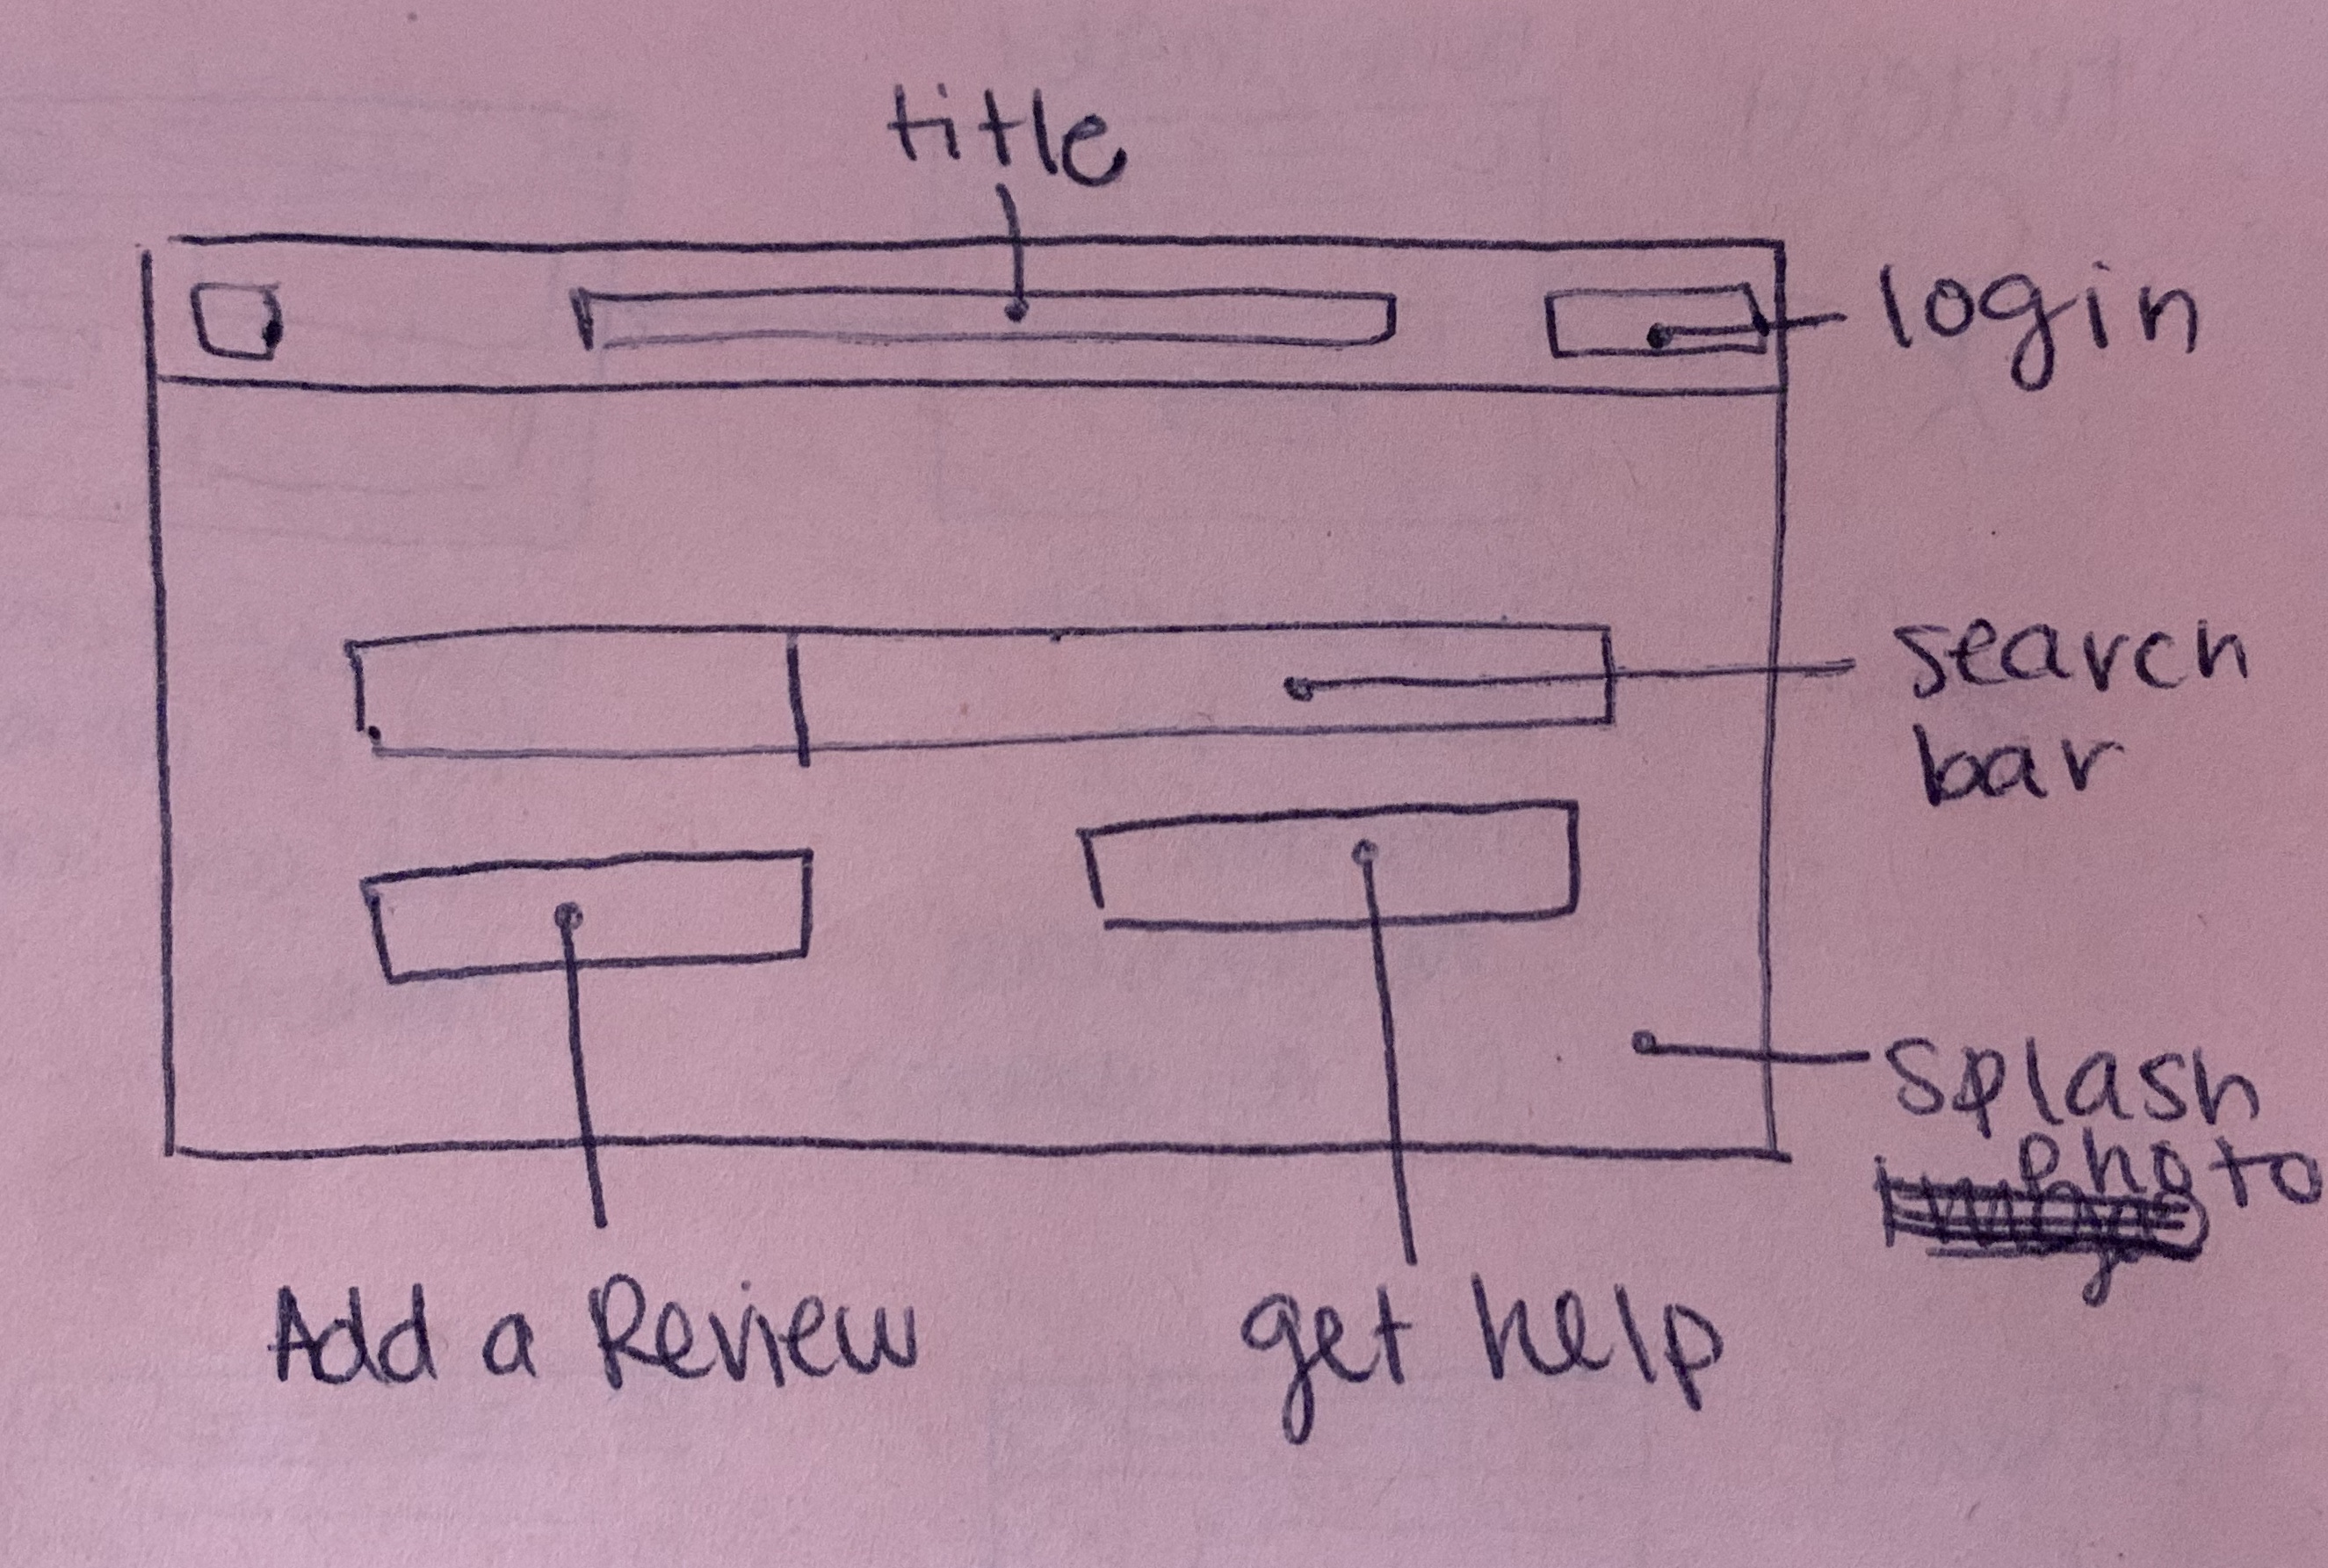 title
login
search
bar
splash
photo
Add a Review
get help